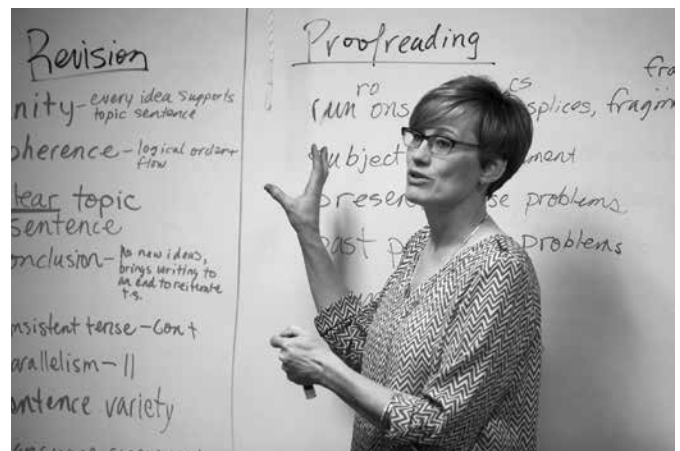 Revision
nity - every idea supports
topic sentence
oherence - logical order +
flow
lear topic
sentence
onclusion - no new ideas,
brings writing to
an end to reiterate
t.s.
nsistent tense - con t
arallelism - ||
entence variety
Proofreading
fra
ro
cs
run ons
splices, fragm
subject
ment
presen
se problems
past p
problems